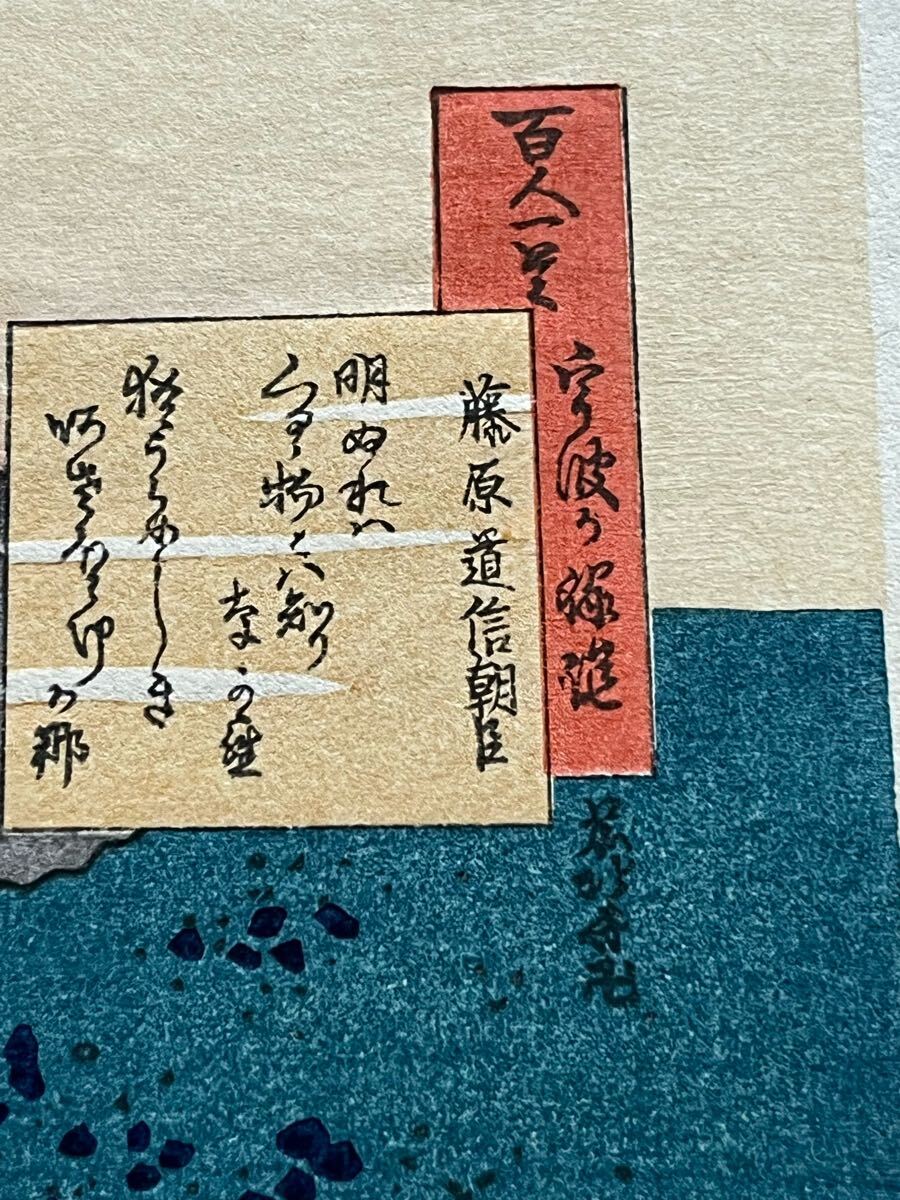 百人一首
宇波か縁説
前北斎卍
藤原道信朝臣
明ぬれハ
くるゝ物とハ知り
なから
猶うらめしき
あさほらけ
か那